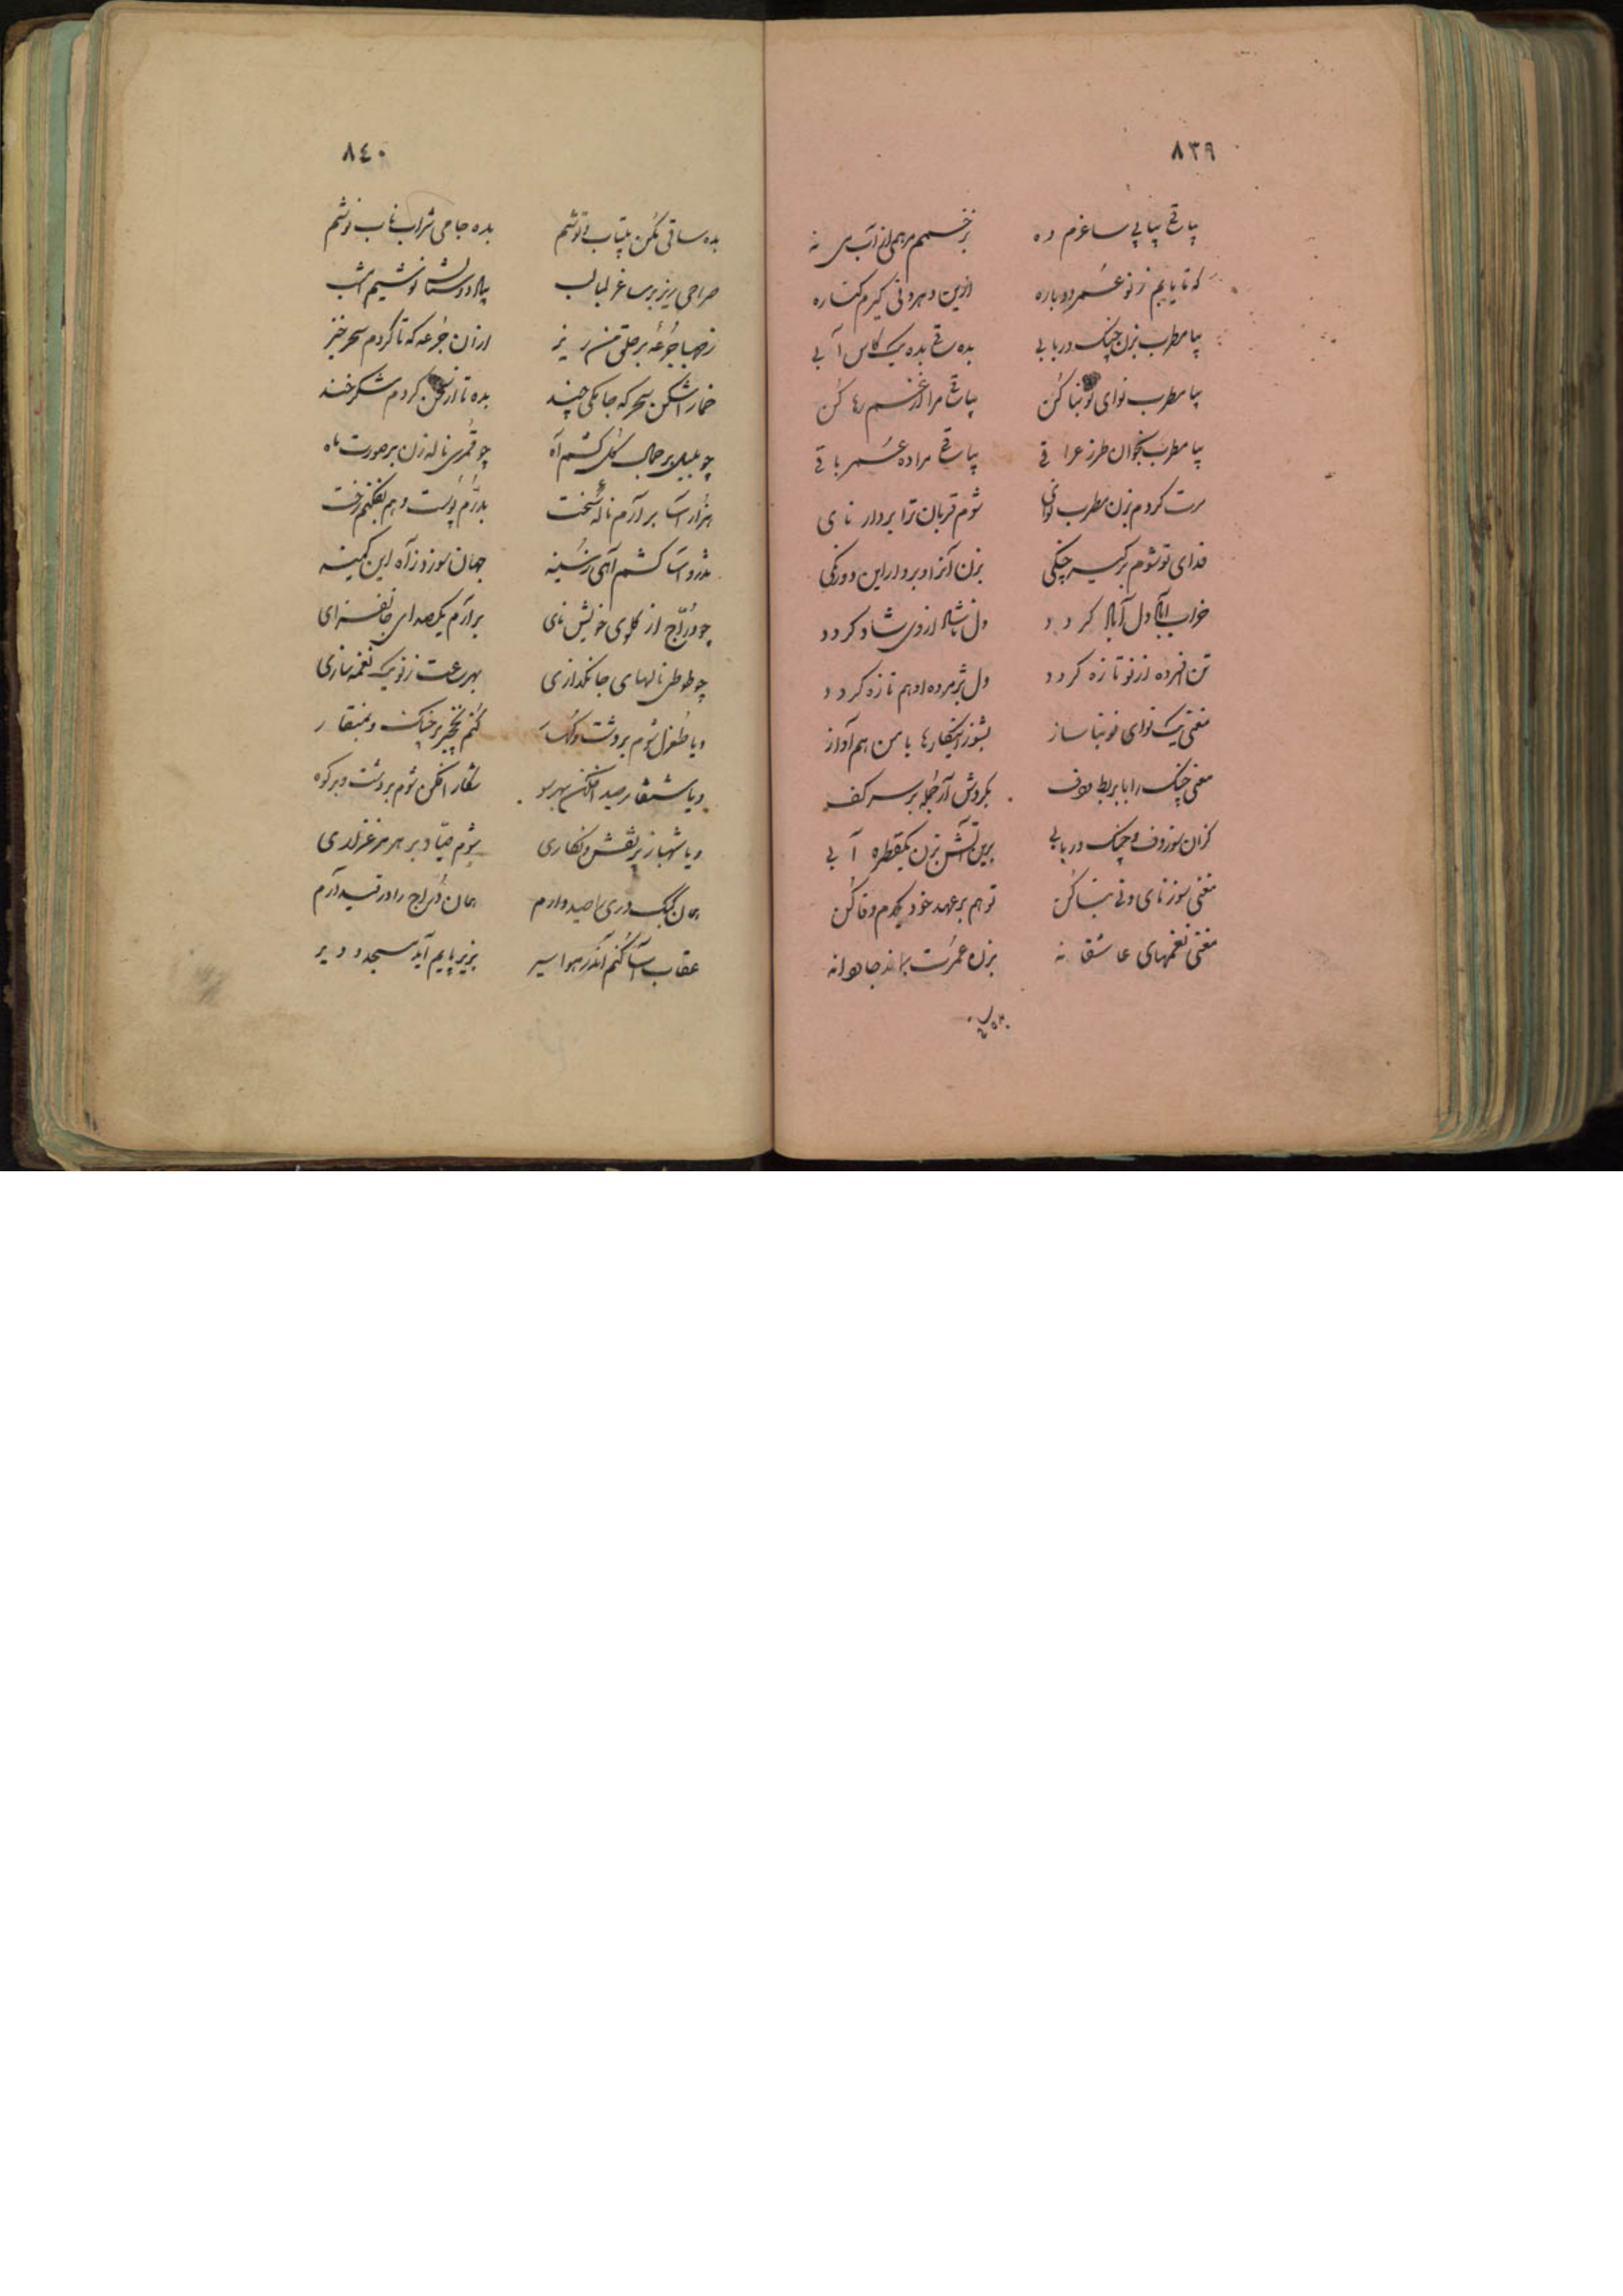 ٨٣٩
بیا ساقی پیاپی ساغرم ده برخمم مرهمی از آب می نه
که تا یابم ز نو عمر دوباره ازین دهر دنی گیرم کناره
بیا مطرب بزن چنگ و ربابی بده ساقی بده یک کاس آبی
بیا مطرب نوای نو بنا کن بیا ساقی مرا از غم رها کن
بیا مطرب بخوان طرز عراقی بیا ساقی مرا ده عمر باقی
سرت گردم بزن مطرب نوائی شوم قربان ترا بردار نای
فدای تو شوم برگیر چنگی بزن آنرا و بردار این دورنگی
خراب آباد دل آباد گردد دل ناشاد از وی شاد گردد
تن افسرده از نو تازه گردد دل پژمرده او هم تازه گردد
مغنی یک نوای نو بنا ساز بشو زانکارها با من هم آواز
مغنی چنگ را با بربط و دف بگردش آر جمله بر سر کف
کزان سوز دف و چنگ و ربابی برین آتش بزن یکقطره آبی
مغنی سوز نای و نی بنا کن تو هم بر عهد خود یکدم وفا کن
مغنی نغمهای عاشقانه بزن عمرت بماند جاودانه
بده
٨٤٠
بده ساقی مکن بیتاب توشم بده جامی شراب ناب نوشم
صراحی ریز بر ساغر لبالب بیاد دوستان نوشیم امشب
ز صهبا جرعهٔ بر حلق من ریز از آن جرعه که تا گردم سحر خیز
خمار اشکن سحرگه جامکی چند بده تا از سخن گردم شکرخند
چو بلبل بر جمال گل کشم آه چو قمری ناله زن بر صورت ماه
هزار آسا برآرم نالهٔ سخت بدرم پوست و هم بفکنم رخت
تذرو آسا کشم آهی ز سینه جهان سوزد ز آه این کمینه
چو درّاج از گلوی خویش نای برآرم یکصدای جانفزای
چو طوطی نالهای جانگدازی بهر ساعت ز نو یک نغمه سازی
ویا طغرل شوم بر دشت و کهسار کنم نخچیر بر چنگ و بمنقار
ویا شنقار صید افکن بهر سو شکار افکن شوم بر دشت و بر کوه
ویا شهباز پر نقش و نگاری شوم صیّاد بر هر مرغزاری
همان کبک دری را صید دارم همان دراج را در قید آرم
عقاب آسا کنم اندر هوا سیر بزیر پایم آید مسجد و دیر